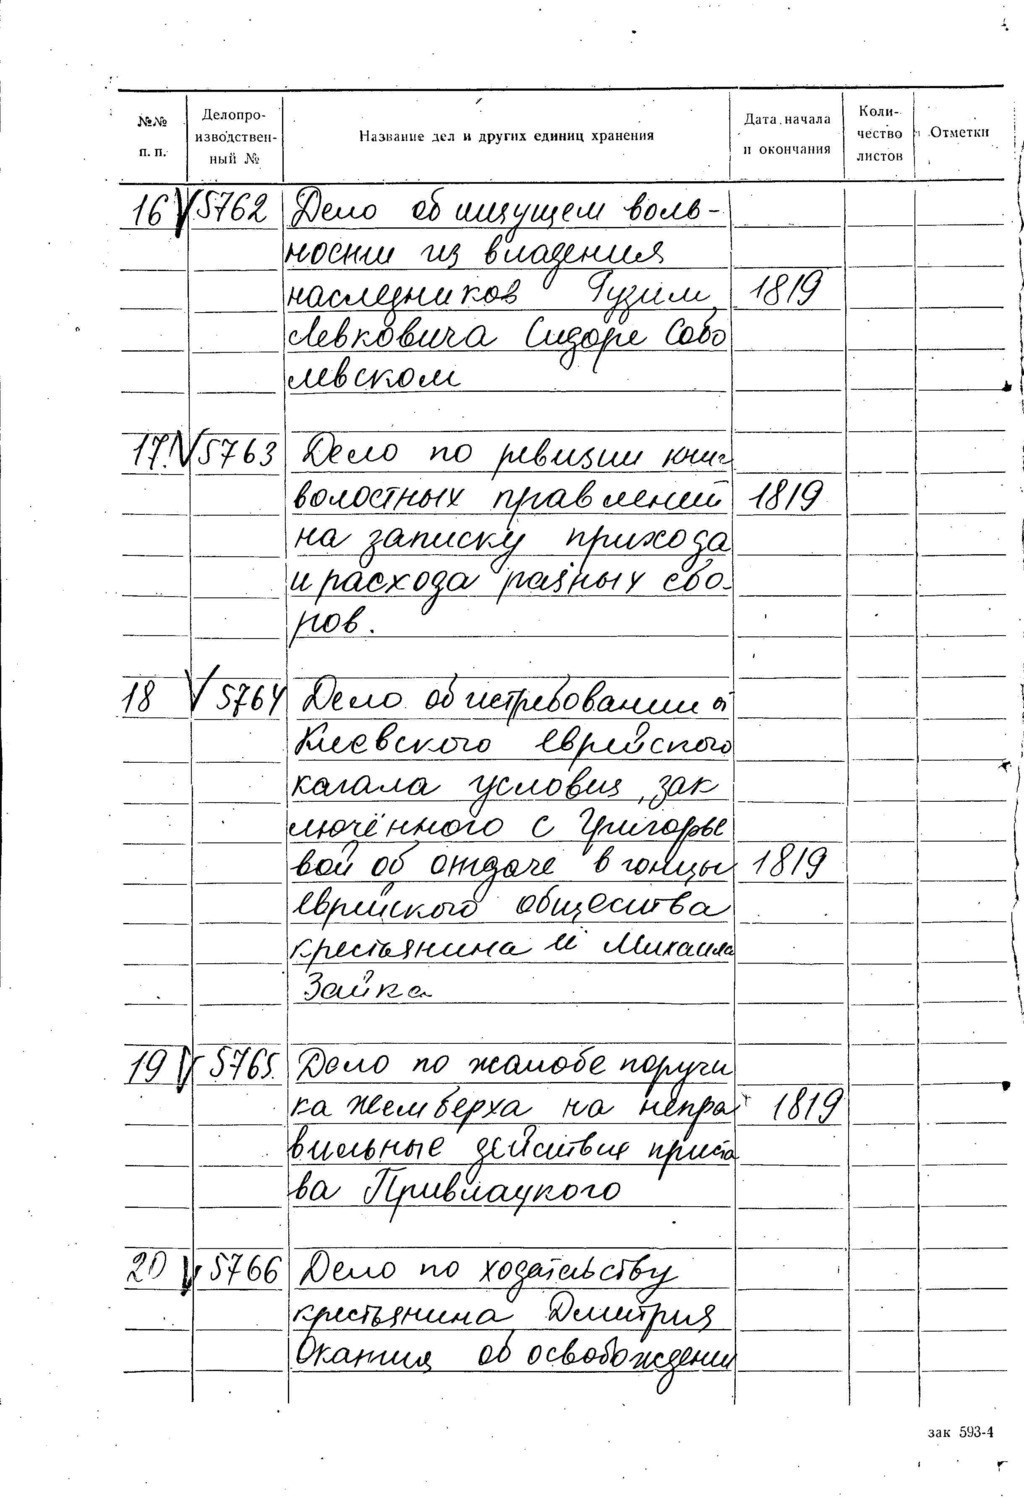 №№ п. п.
Делопро-
изводствен-
ный №
Название дел и других единиц хранения
Дата начала
и окончания
Коли-
чество
листов
Отметки
16 V 5762 Дело об ищущем воль-
ности из владения
наследников Гузим, 1819
Левковича Сидоре Собо
левском
17. V 5763 Дело по ревизии книг
волостных правлений 1819
на записку прихода
и расхода разных сбо-
ров.
18 V 5764 Дело об истребовании от
Киевского еврейского
кагала условия, зак
лючённого с Григорье
вой об отдаче в гонцы 1819
еврейского общества
крестьянина её Михаила
Зайка
19 V 5765. Дело по жалобе поручи
ка Жемберха на непра 1819
вильные действия приста
ва Привлацкого
20 V 5766 Дело по ходательству
крестьянина Дмитрия
Окантия об освобождении
зак 593-4